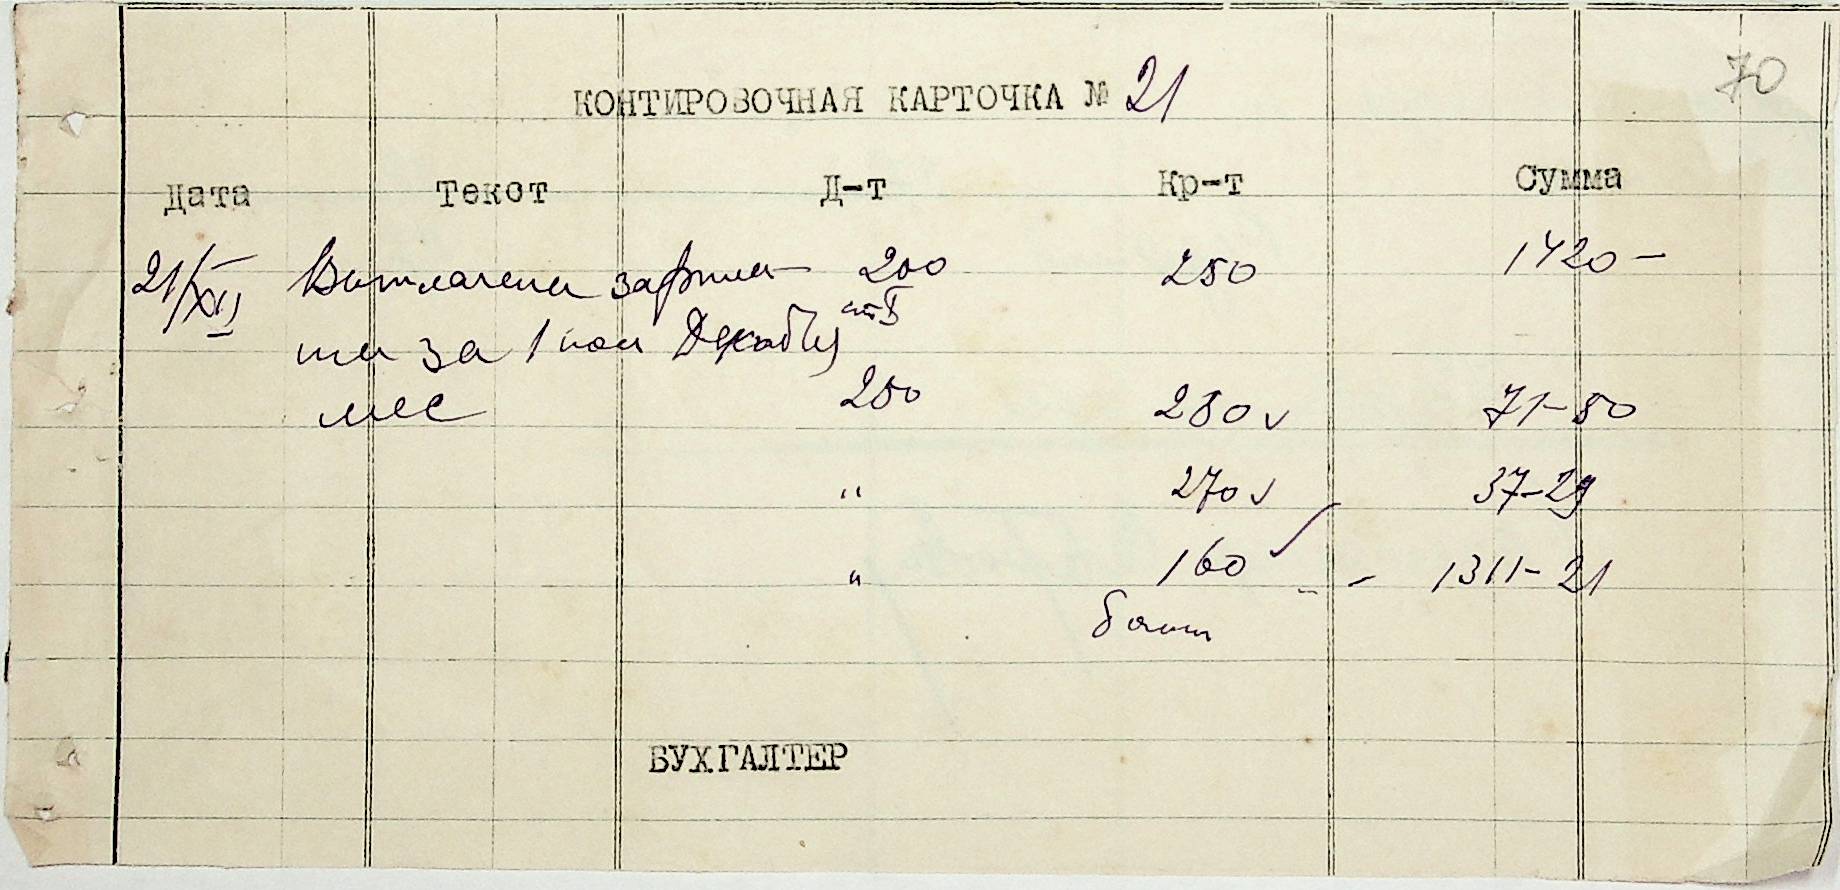 70
КОНТИРОВОЧНАЯ КАРТОЧКА № 21
Дата Текст Д-т Кр-т Сумма
21/XII Выплачена зарпла- 200 250 1420 –
та за 1 пол Декабря ст 5
мес 250 280 v 71-80
" 270 v 37-29
" 160 – 1311-21
БУХГАЛТЕР